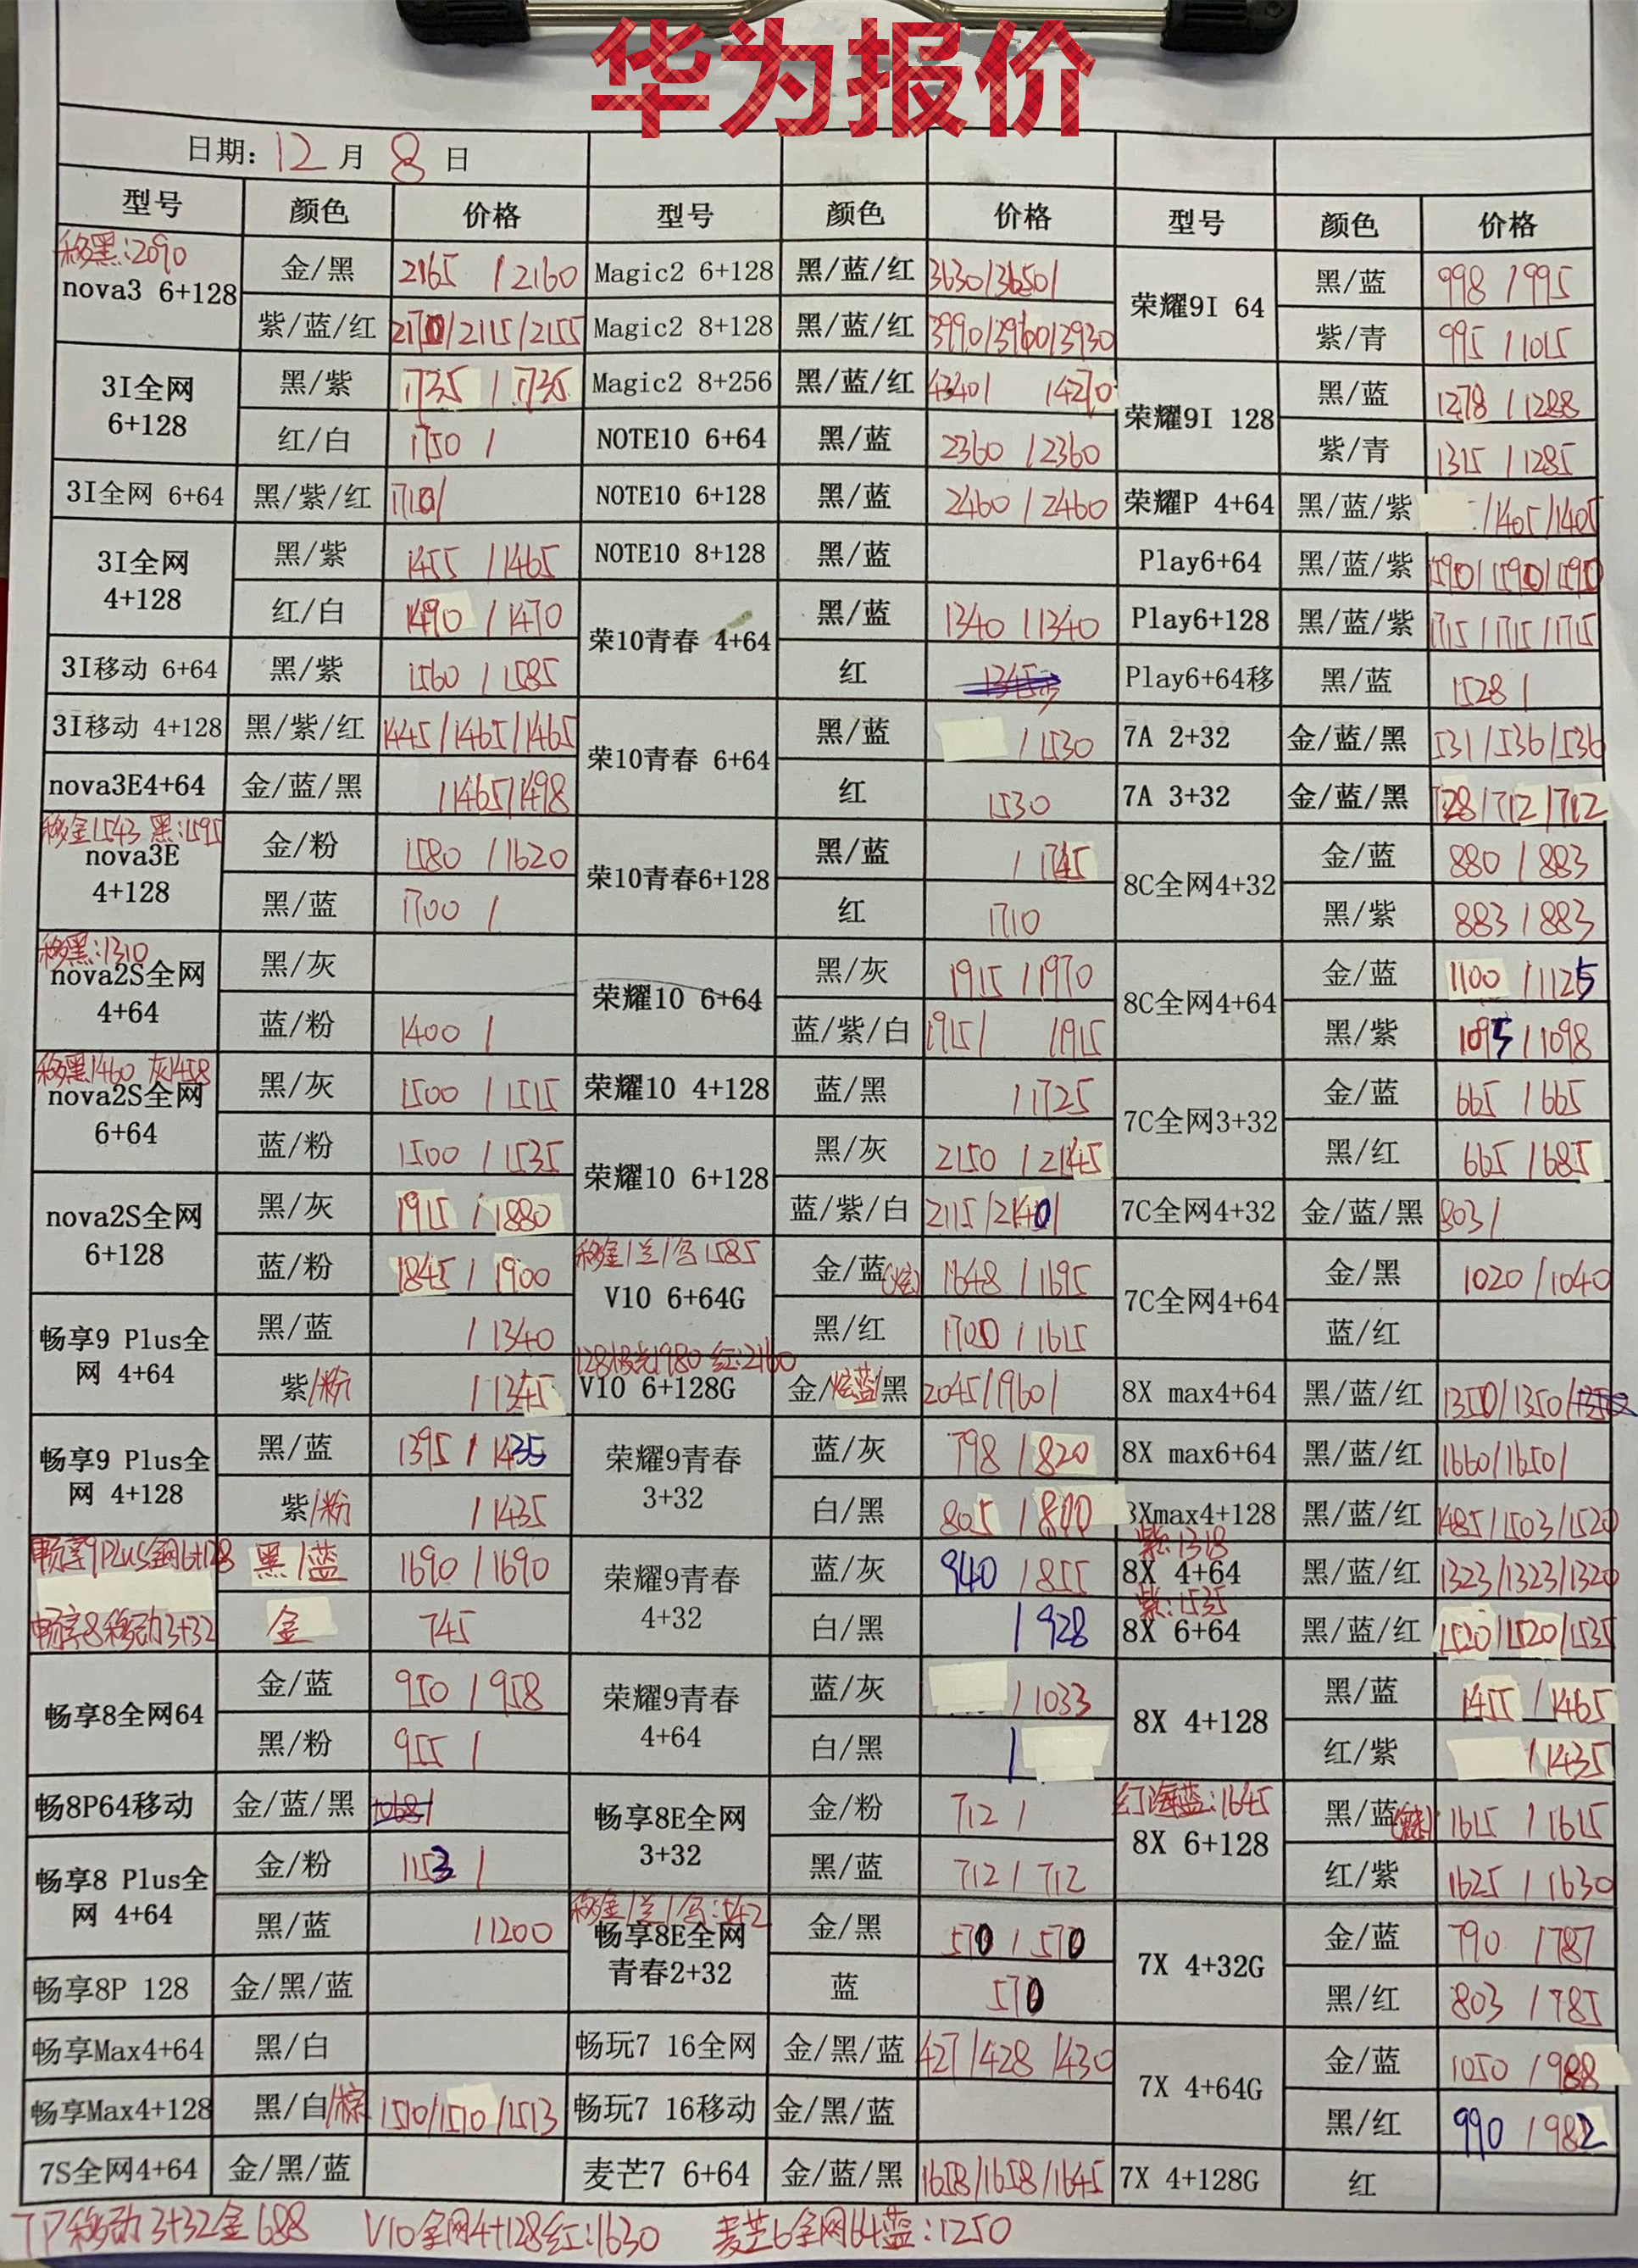 华为报价
日期: 12 月 8 日
型号 颜色 价格 型号 颜色 价格 型号 颜色 价格
移黑:2090
nova3 6+128 金/黑 2165 / 2160
紫/蓝/红 /2115/2155
3I全网 6+128 黑/紫 1735 / 1735
红/白 1750 /
3I全网 6+64 黑/紫/红 1710/
3I全网 4+128 黑/紫 1455 / 1465
红/白 1490 / 1470
3I移动 6+64 黑/紫 1560 / 1585
3I移动 4+128 黑/紫/红 1445/1465/1465
nova3E4+64 金/蓝/黑 /1465/1498
移金1543 黑:1595
nova3E 4+128 金/粉 1580 / 1620
黑/蓝 1700 /
移黑:1310
nova2S全网 4+64 黑/灰
蓝/粉 1400 /
移黑1460 灰1458
nova2S全网 6+64 黑/灰 1500 / 1515
蓝/粉 1500 / 1535
nova2S全网 6+128 黑/灰 1915 / 1880
蓝/粉 1845 / 1900
畅享9 Plus全网 4+64 黑/蓝 / 1340
紫/粉 / 1345
畅享9 Plus全网 4+128 黑/蓝 1395 / 1435
紫/粉 / 1435
畅享9Plus全网6+128 黑/蓝 1690 / 1690
畅享8移动3+32 金 745
畅享8全网64 金/蓝 950 / 958
黑/粉 955 /
畅8P64移动 金/蓝/黑
畅享8 Plus全网 4+64 金/粉 1153 /
黑/蓝 / 1200
畅享8P 128 金/黑/蓝
畅享Max4+64 黑/白
畅享Max4+128 黑/白/棕 1510/1510/1513
7S全网4+64 金/黑/蓝
Magic2 6+128 黑/蓝/红 3630/3650/
Magic2 8+128 黑/蓝/红 3990/3960/3930
Magic2 8+256 黑/蓝/红 4340/ /4270
NOTE10 6+64 黑/蓝 2360 / 2360
NOTE10 6+128 黑/蓝 2460 / 2460
NOTE10 8+128 黑/蓝
荣10青春 4+64 黑/蓝 1340 / 1340
红
荣10青春 6+64 黑/蓝 / 1530
红 1530
荣10青春6+128 黑/蓝 / 1745
红 1710
荣耀10 6+64 黑/灰 1915 / 1970
蓝/紫/白 1915/ /1915
荣耀10 4+128 蓝/黑 / 1725
荣耀10 6+128 黑/灰 2150 / 2145
蓝/紫/白 2115/2140/
移金/兰/乌1585
V10 6+64G 金/蓝(炫) 1648 / 1695
黑/红 1700 / 1615
128极光1980 红:2160
V10 6+128G 金/炫蓝/黑 2045/1960/
荣耀9青春 3+32 蓝/灰 798 / 820
白/黑 805 / 800
荣耀9青春 4+32 蓝/灰 940 / 855
白/黑 / 928
荣耀9青春 4+64 蓝/灰 / 1033
白/黑 /
畅享8E全网 3+32 金/粉 712 /
黑/蓝 712 / 712
移金/兰/乌:542
畅享8E全网青春2+32 金/黑 570 / 570
蓝 570
畅玩7 16全网 金/黑/蓝 427/428/430
畅玩7 16移动 金/黑/蓝
麦芒7 6+64 金/蓝/黑 1658/1658/1645
荣耀9I 64 黑/蓝 998 / 995
紫/青 995 / 1015
荣耀9I 128 黑/蓝 1278 / 1288
紫/青 1315 / 1285
荣耀P 4+64 黑/蓝/紫 /1405/1405
Play6+64 黑/蓝/紫 1590/1590/1590
Play6+128 黑/蓝/紫 1715/1715/1715
Play6+64移 黑/蓝 1528 /
7A 2+32 金/蓝/黑 531/536/536
7A 3+32 金/蓝/黑 728/712/712
8C全网4+32 金/蓝 880 / 883
黑/紫 883 / 883
8C全网4+64 金/蓝 1100 / 1125
黑/紫 1095 / 1098
7C全网3+32 金/蓝 665 / 665
黑/红 665 / 685
7C全网4+32 金/蓝/黑 803/
7C全网4+64 金/黑 1020 / 1040
蓝/红
8X max4+64 黑/蓝/红 1350/1350/
8X max6+64 黑/蓝/红 1660/1650/
8Xmax4+128 黑/蓝/红 1485/1503/1520
紫:1318
8X 4+64 黑/蓝/红 1323/1323/1320
紫:1535
8X 6+64 黑/蓝/红 1520/1520/1535
8X 4+128 黑/蓝 1455 / 1465
红/紫 / 1435
幻海蓝:1645
8X 6+128 黑/蓝(魅) 1615 / 1615
红/紫 1625 / 1630
7X 4+32G 金/蓝 790 / 787
黑/红 803 / 785
7X 4+64G 金/蓝 1050 / 988
黑/红 990 / 982
7X 4+128G 红
7P移动3+32金688 V10全网4+128红:1630 麦芒6全网64蓝:1250